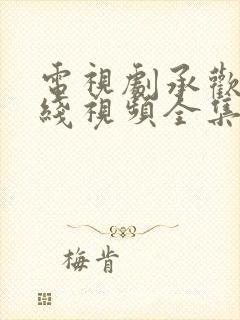 電視劇承歡
綫視頻全集
梅肯